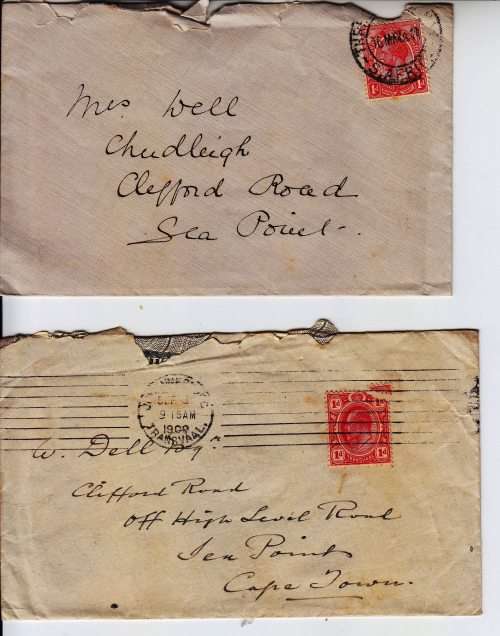 16 MAR
S.AFR
1d 1d
Mrs Dell
Chudleigh
Clifford Road
Sea Point.
SEP
9 15AM
1909
TRANSVAAL.
1d 1d
1d 1d
W. Dell Esqr
Clifford Road
Off High Level Road
Sea Point
Cape Town.